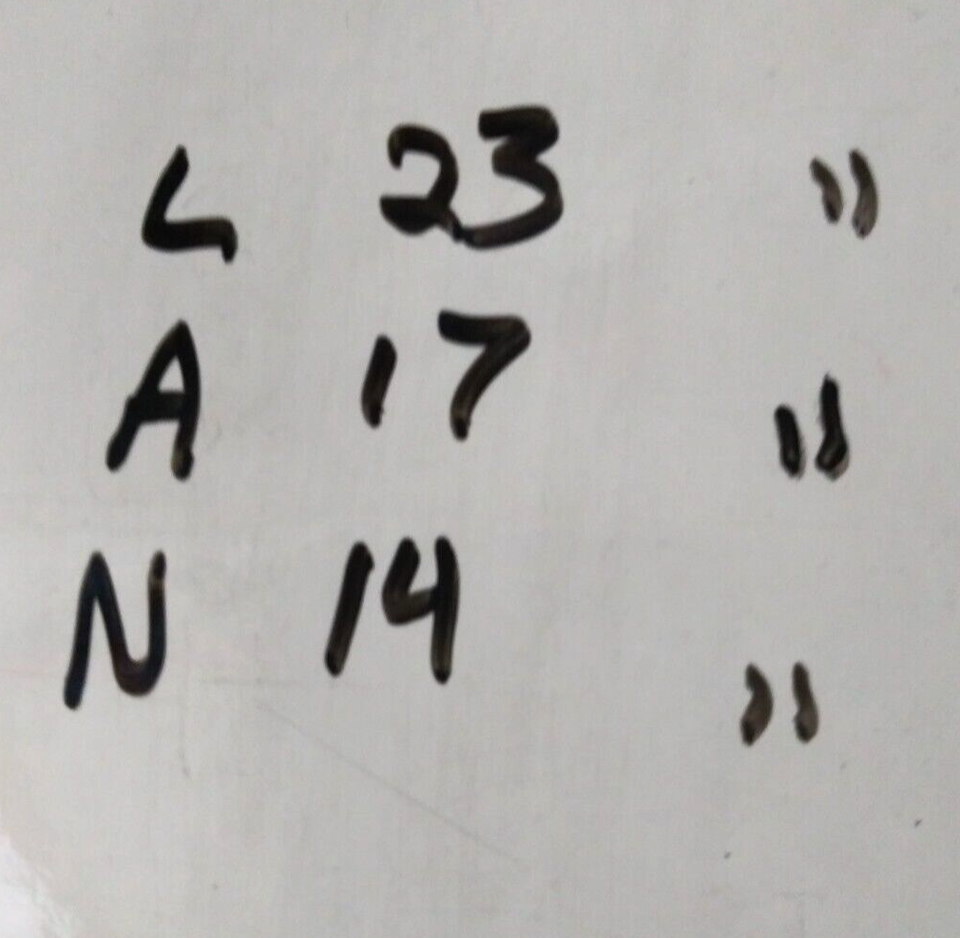 L 23 "
A 17 "
N 14 "